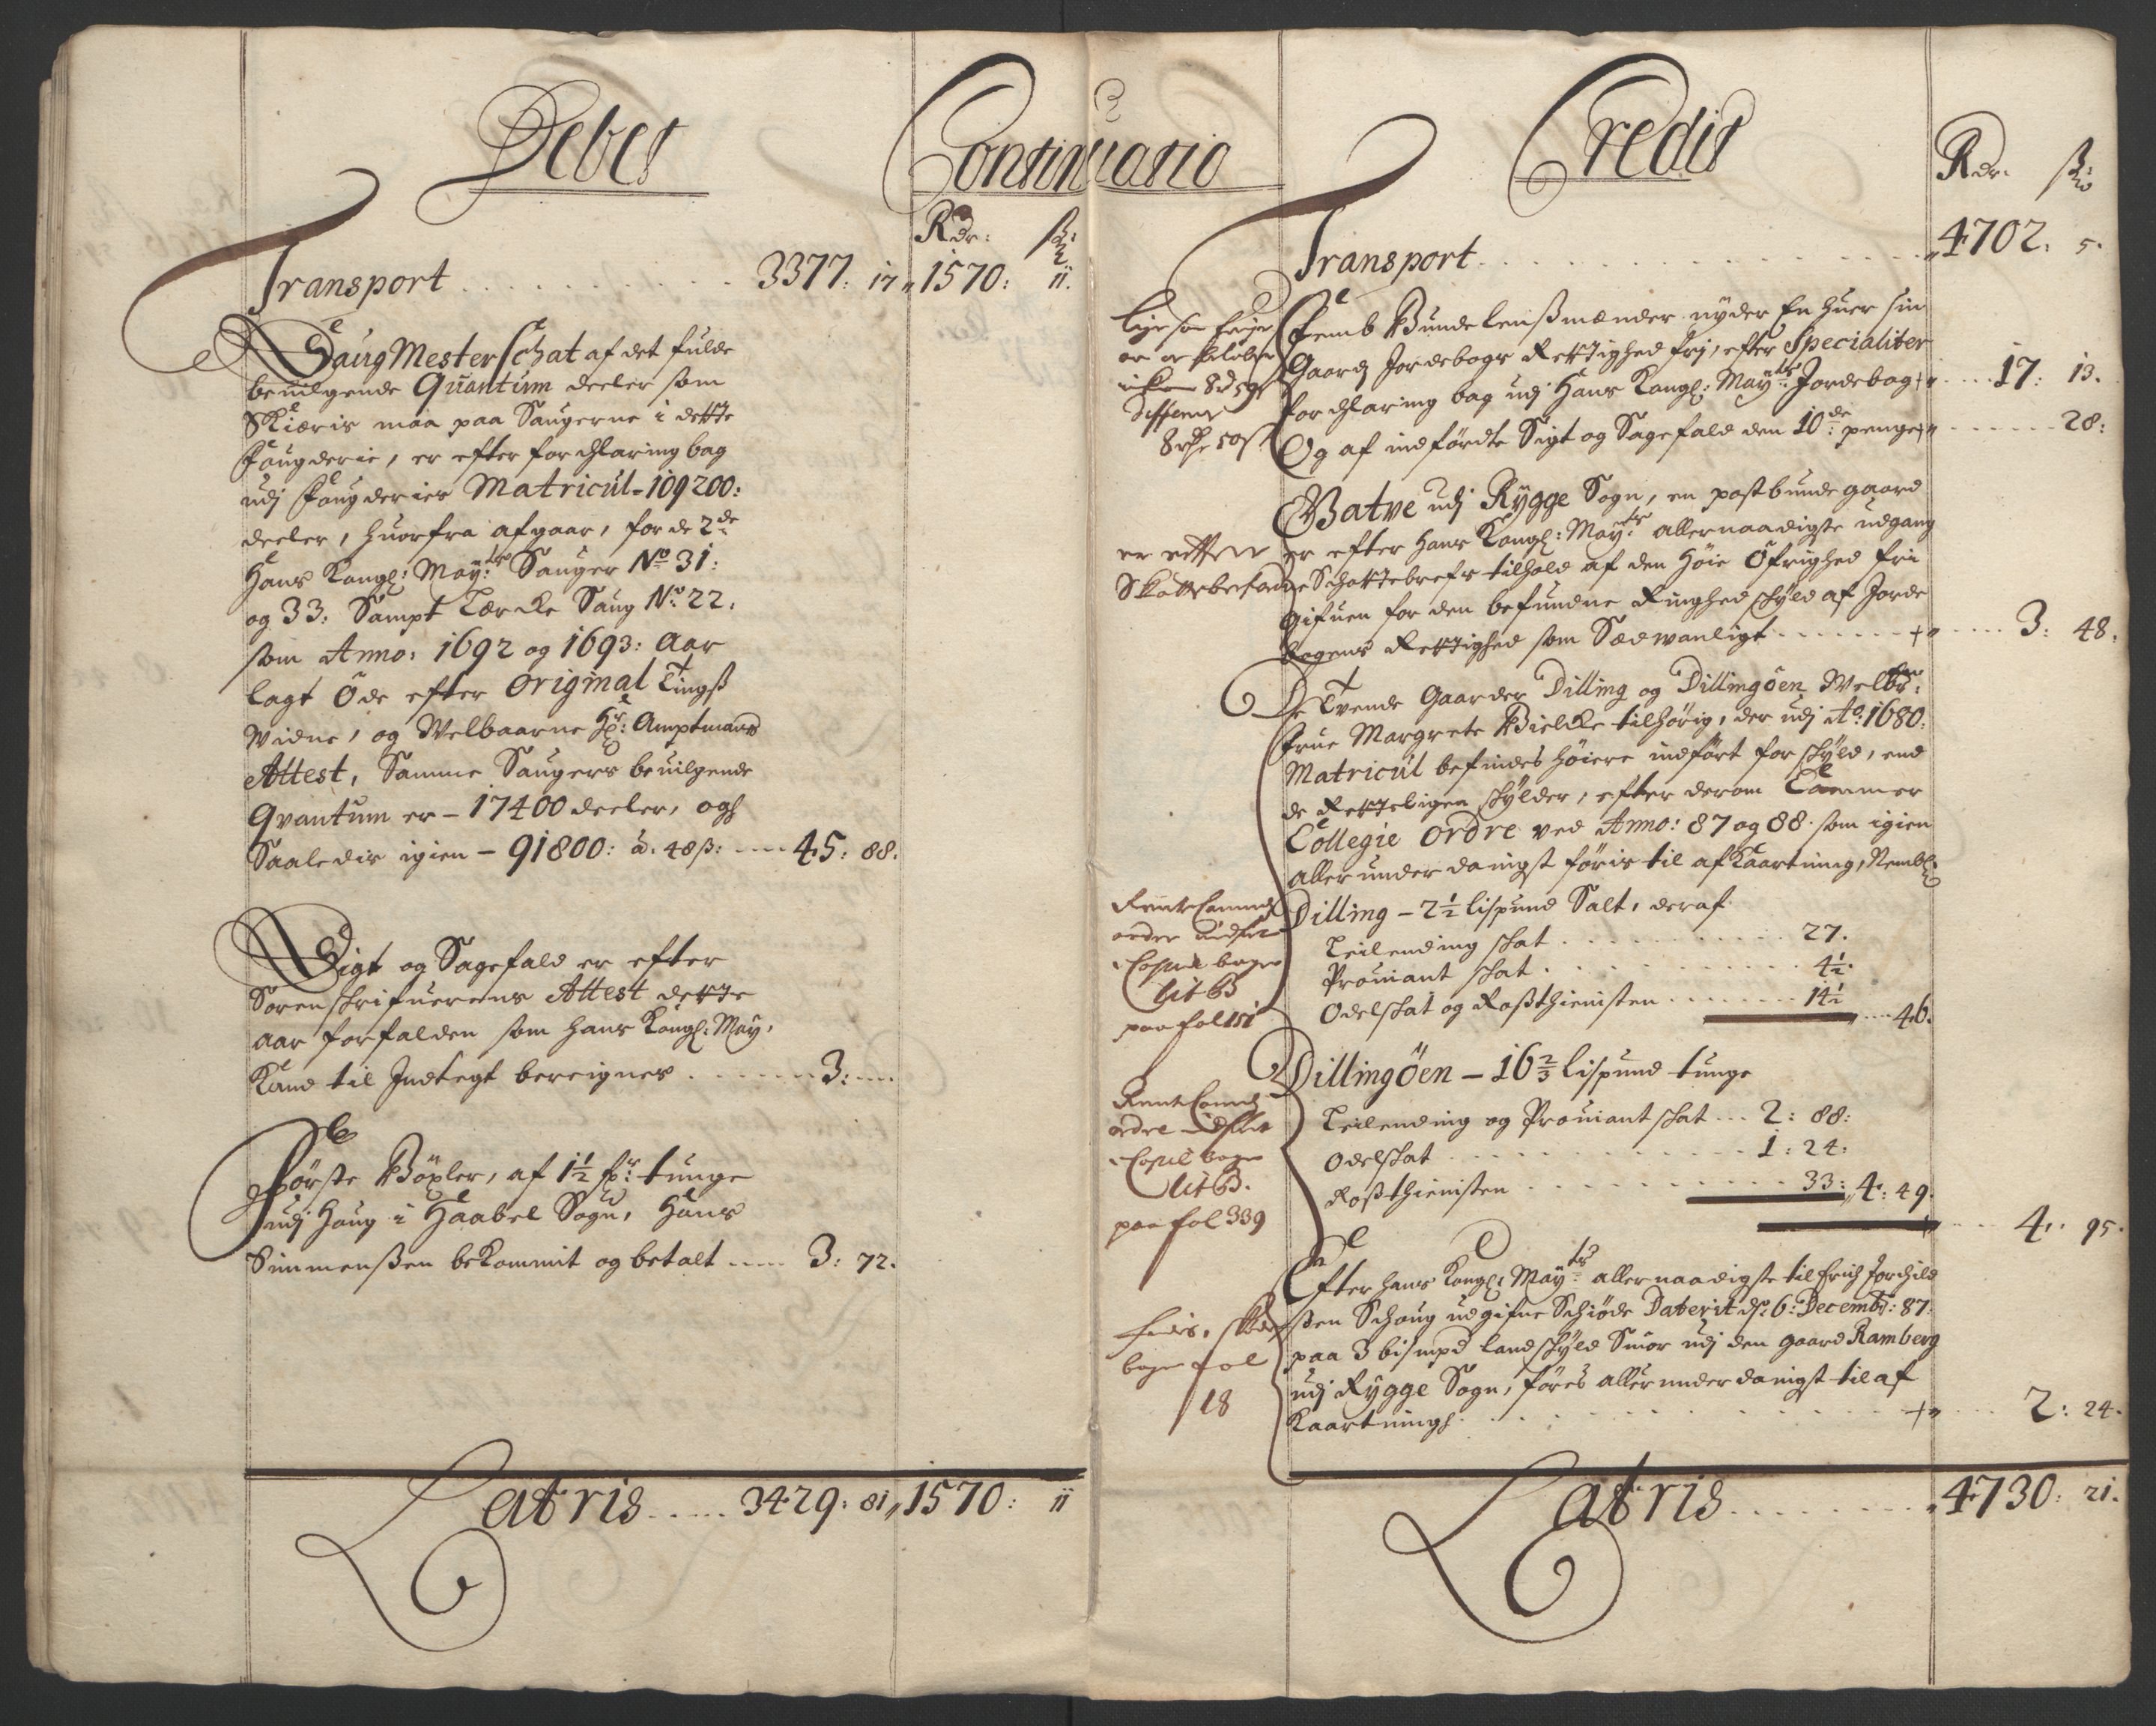 Debet
Continuatio
Rdr: ß:
Transport 3377: 17 „ 1570: 11.
Saug Mester Schat af det fulde
beuilgende Quantum deeler som
Skiæris maa paa Saugerne i dette
Fougderie, er efter forchlaring bag
udj Fougderies Matricul - 109200:
deeler, huorfra afgaar, for de 2de
Hans Kongl: May:ts Sauger No 31:
og 33: Sampt Lærcke Saug No: 22,
som Anno: 1692 og 1693: Aar
lagt Öde efter Original Tingß
Widne, og Welbaarne Hr: Amptmands
Attest, Samme Saugers beuilgende
Qvantum er - 17400 deeler, ogh
Saaledis igien - 91800: à. 48 ß: 45: 88.
Sigt og Sagefald er efter
Sorenskrifuerens Attest dette
aar forfalden som hans Kongl: May,
Kand til Indtegt bereignes 3:
Förste Böxler, af 1½ ſpr: tunge
udj Haug i Haabel Sogn, Hans
Simmenßen bekommit og betalt 3: 72.
Latris 3429: 81 „ 1570: 11
Credit
Rdr. ß:
Transport „ 4702. 5.
Femb Bunde lenßmænder nyder En huer sin
Gaards Jordebogs Rettighed frj, efter Specialiter
forchlaring bag udj Hans Kongl: May:ts Jordebog + „ 17: 13.
Og af indförte Sigt og Sagefald den 10de: penge + „ 28:
differerer
8 rdr 50 ß
Batve udj Rygge Sogn, en postbunde gaard
er efter Hans Kongl: May:ts allernaadigste udgang
ne Schattebrefs tilhold af den Höie Öfrighed fri
gifuen for den befundne Ringhed skyld af Jorde
bogens Rettighed som Sædwanligt + „ 3: 48.
De Tvende Gaarder Dilling og Dillingöen Welbr:
frue Margrete Bielke tilhörig, der udj Ao: 1680:
Matricul befindes höiere indfört for skyld, end
de Retteligen skylder, efter derom Cammer
Collegie Ordre ved Anno: 87 og 88. som igien
allerunderdanigst föris til afkaartning, Nembl:
Dilling - 2½ lispund Salt, deraf
Leilending skat 27.
Prouiant skat 4½.
Odelskat og Roßthienisten 14½ „ 46.
Rente Cammer
ordre indfört
i Copie bogen
Lit B
paa fol 151
Dillingöen - 16⅔ lispund tunge
Leilending og Prouiant skat 2: 88:
Odelskat 1: 24:
Roßthienisten 33: „ 4: 49.
„ 4. 95.
Rente Cammer
ordre indfört
i Copie bogen
Lit B.
paa fol 339
Efter hans Kongl: May:ts allernaadigste til Erich Jorchild
ßen Schoug udgifne Schiöde Daterit ds: 6: Decembr: 87:
paa 3 bismpd landskyld Smör udj den gaard Ramberg
udj Rygge Sogn, föres allerunderdanigst til af
Kaartningh + „ 2: 24.
bogen fol
18
Latris „ 4730: 21.